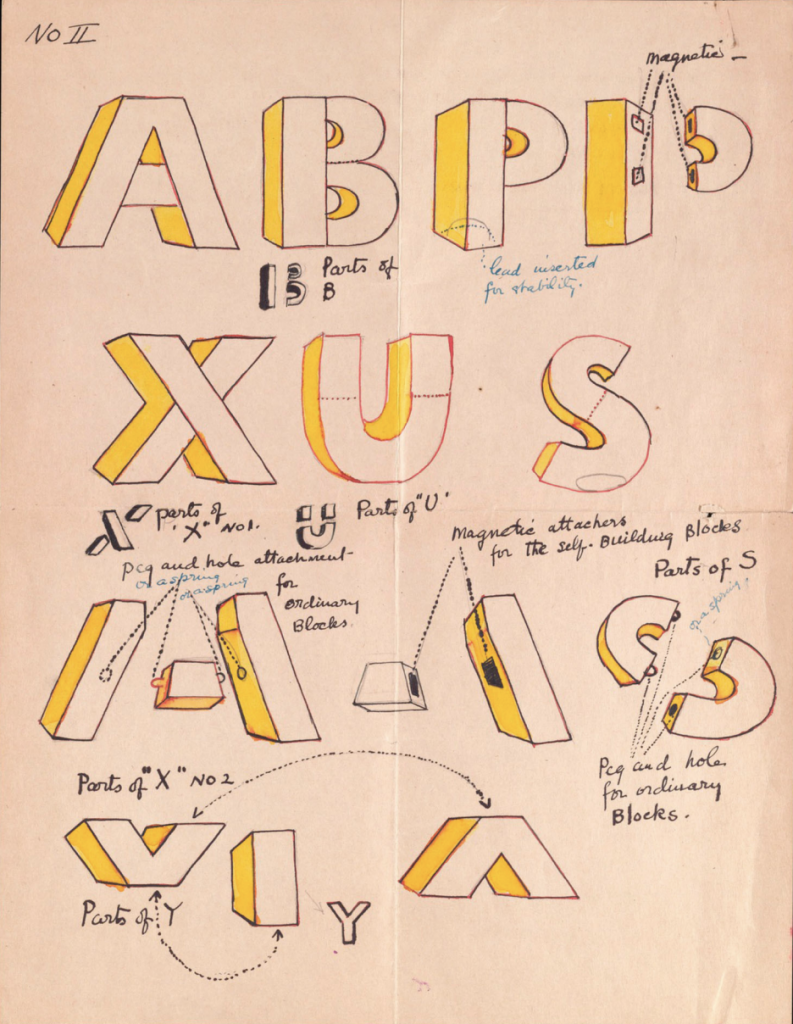 No II
magnetic
A B P P
Parts of
B
lead inserted
for stability.
X U S
parts of
"X" No 1.
Parts of "U"
Magnetic attachers
for the self-Building Blocks
Peg and hole attachment
or a spring
or a spring
for
ordinary
Blocks.
Parts of S
or a spring
A S
Peg and hole
for ordinary
Blocks.
Parts of "X" No 2
Parts of Y
Y